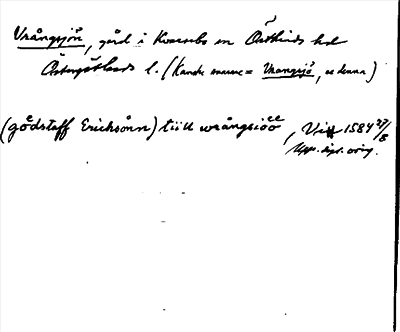 Vrångsjön, gård i Kvarsebo sn Östkinds hd
Östergötlands l. (Kanske samma = Vrangsjö, se denna)
(gødstaff Ericksönn) tiill wrångsiöö, Vitt 1584 27/8
Upps. dipl. orig.